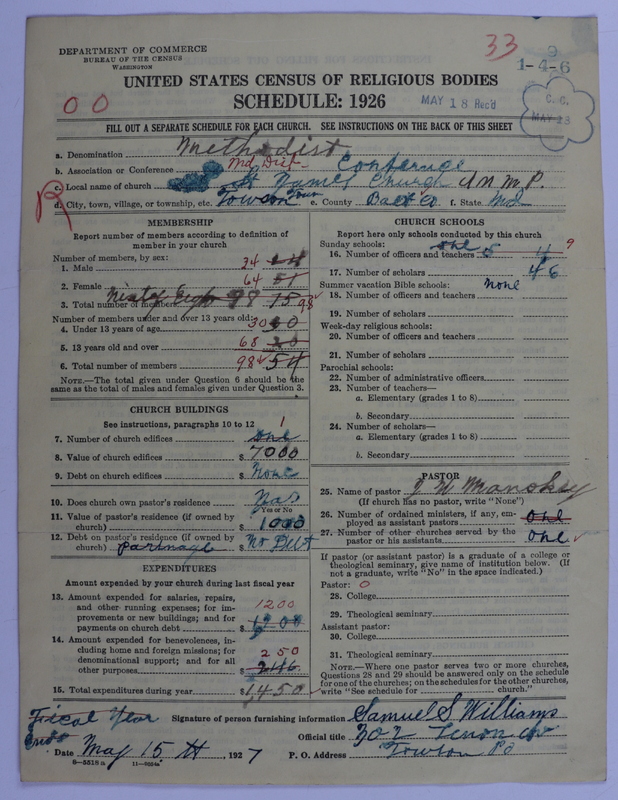 DEPARTMENT OF COMMERCE
BUREAU OF THE CENSUS
WASHINGTON
33
9
1-4-6
UNITED STATES CENSUS OF RELIGIOUS BODIES
SCHEDULE: 1926
0 0
MAY 18 Rec'd
C. C.
MAY 23
FILL OUT A SEPARATE SCHEDULE FOR EACH CHURCH. SEE INSTRUCTIONS ON THE BACK OF THIS SHEET
a. Denomination Methodist
b. Association or Conference Md Dist Conference
c. Local name of church St James Church U A M P.
d. City, town, village, or township, etc. Towson e. County Balt Co f. State Md
R
MEMBERSHIP
Report number of members according to definition of member in your church
Number of members, by sex:
1. Male 34
2. Female 64 51
3. Total number of members Ninty Eight 98 15 98
Number of members under and over 13 years old:
4. Under 13 years of age 30 30
5. 13 years old and over 68 20
6. Total number of members 98 54
NOTE.—The total given under Question 6 should be the same as the total of males and females given under Question 3.
CHURCH BUILDINGS
See instructions, paragraphs 10 to 12
7. Number of church edifices 1 one
8. Value of church edifices $ 7000
9. Debt on church edifices $ None
10. Does church own pastor's residence Yas
Yes or No
11. Value of pastor's residence (if owned by church) $ 1000
12. Debt on pastor's residence (if owned by church) parsnage $ No Debt
EXPENDITURES
Amount expended by your church during last fiscal year
13. Amount expended for salaries, repairs, and other running expenses; for improvements or new buildings; and for payments on church debt $ 1200 1200
14. Amount expended for benevolences, including home and foreign missions; for denominational support; and for all other purposes $ 250
15. Total expenditures during year $ 1450
CHURCH SCHOOLS
Report here only schools conducted by this church
Sunday schools: one
16. Number of officers and teachers 5 11 9
17. Number of scholars 46
Summer vacation Bible schools: None
18. Number of officers and teachers
19. Number of scholars
Week-day religious schools:
20. Number of officers and teachers
21. Number of scholars
Parochial schools:
22. Number of administrative officers
23. Number of teachers—
a. Elementary (grades 1 to 8)
b. Secondary
24. Number of scholars—
a. Elementary (grades 1 to 8)
b. Secondary
PASTOR
25. Name of pastor J W Manokey
(If church has no pastor, write "None")
26. Number of ordained ministers, if any, employed as assistant pastors one
27. Number of other churches served by the pastor or his assistants one
If pastor (or assistant pastor) is a graduate of a college or theological seminary, give name of institution below. (If not a graduate, write "No" in the space indicated.)
Pastor: 0
28. College
29. Theological seminary
Assistant pastor:
30. College
31. Theological seminary
NOTE.—Where one pastor serves two or more churches, Questions 28 and 29 should be answered only on the schedule for one of the churches; on the schedules for the other churches, write "See schedule for church."
Fiscal Year
Ends
Signature of person furnishing information Samuel S Williams
Official title 302 Lenox Av
Date May 15 th, 1927 P. O. Address Towson
6—5518a 11—9224a